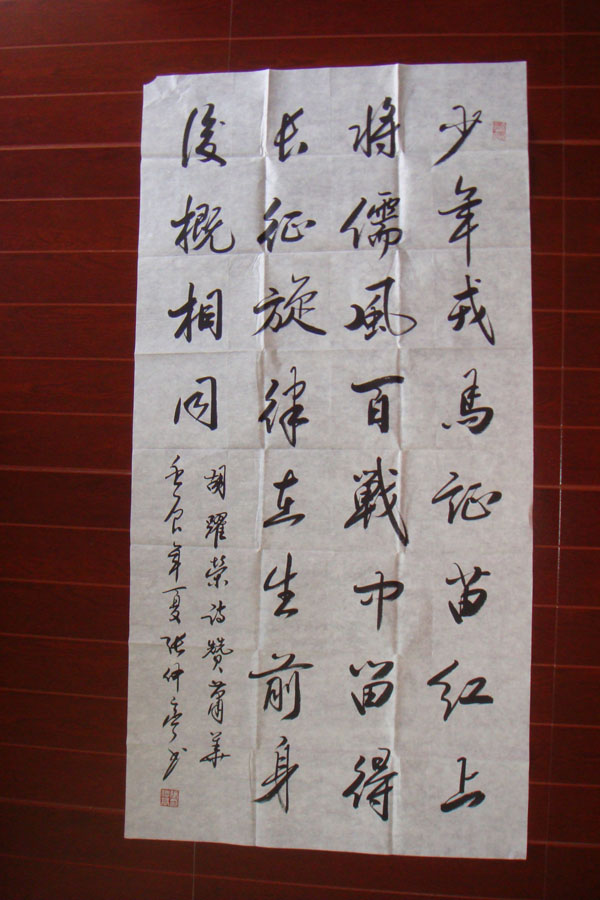 少年戎馬証苗红上
将儒風百戰中留得
长征旋律在生前身
後概相同
胡躍荣诗赞萧華
壬辰年夏张仲亭书